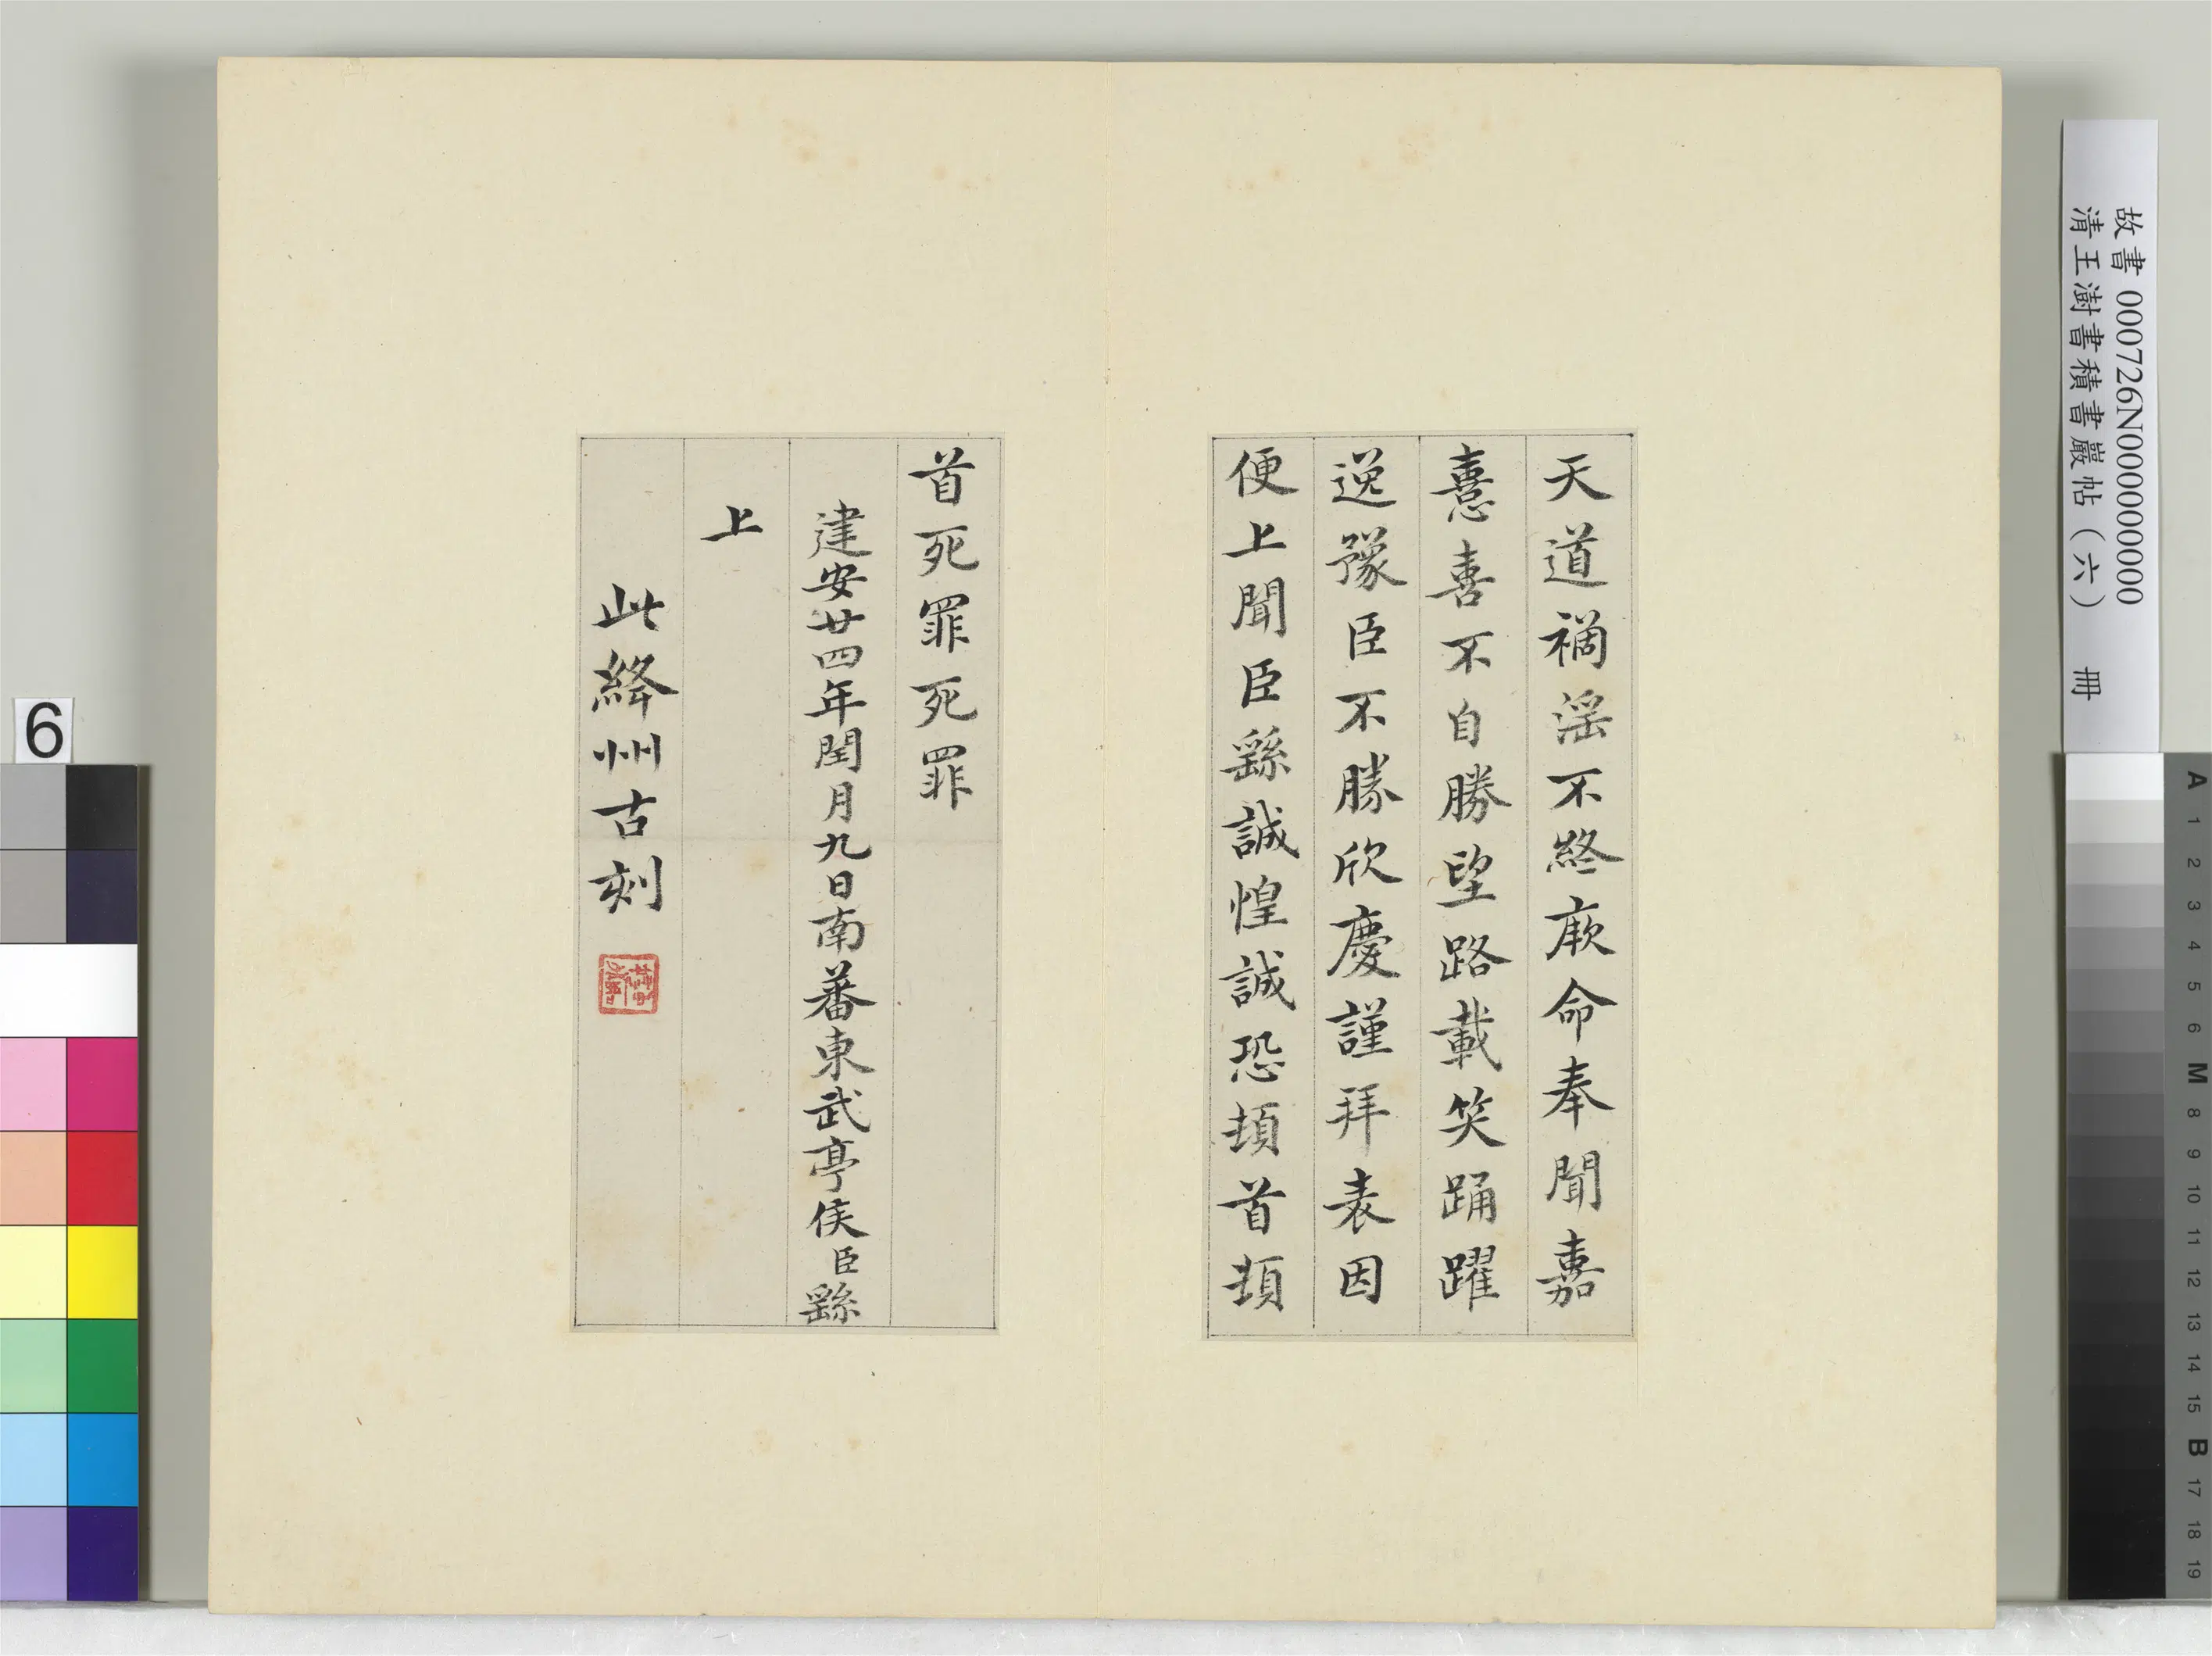 天道禍淫不終厥命奉聞嘉
憙喜不自勝望路載笑踊躍
逸豫臣不勝欣慶謹拜表因
便上聞臣繇誠惶誠恐頓首頓
首死罪死罪
建安廿四年閏月九日南蕃東武亭侯臣繇
上
此絳州古刻
故書 000726N000000000
清王澍書積書巖帖（六） 冊
6
A 1 2 3 4 5 6 M 8 9 10 11 12 13 14 15 B 17 18 19